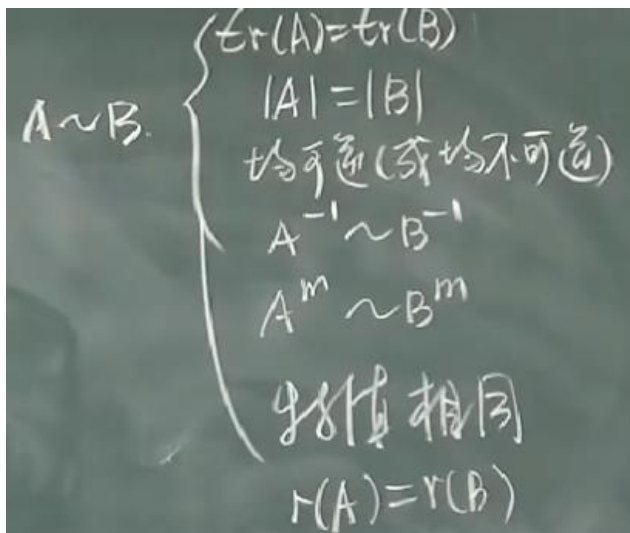 tr(A)=tr(B)
|A|=|B|
A~B.
均可逆(或均不可逆)
A⁻¹~B⁻¹
Aᵐ~Bᵐ
特征值相同
r(A)=r(B)